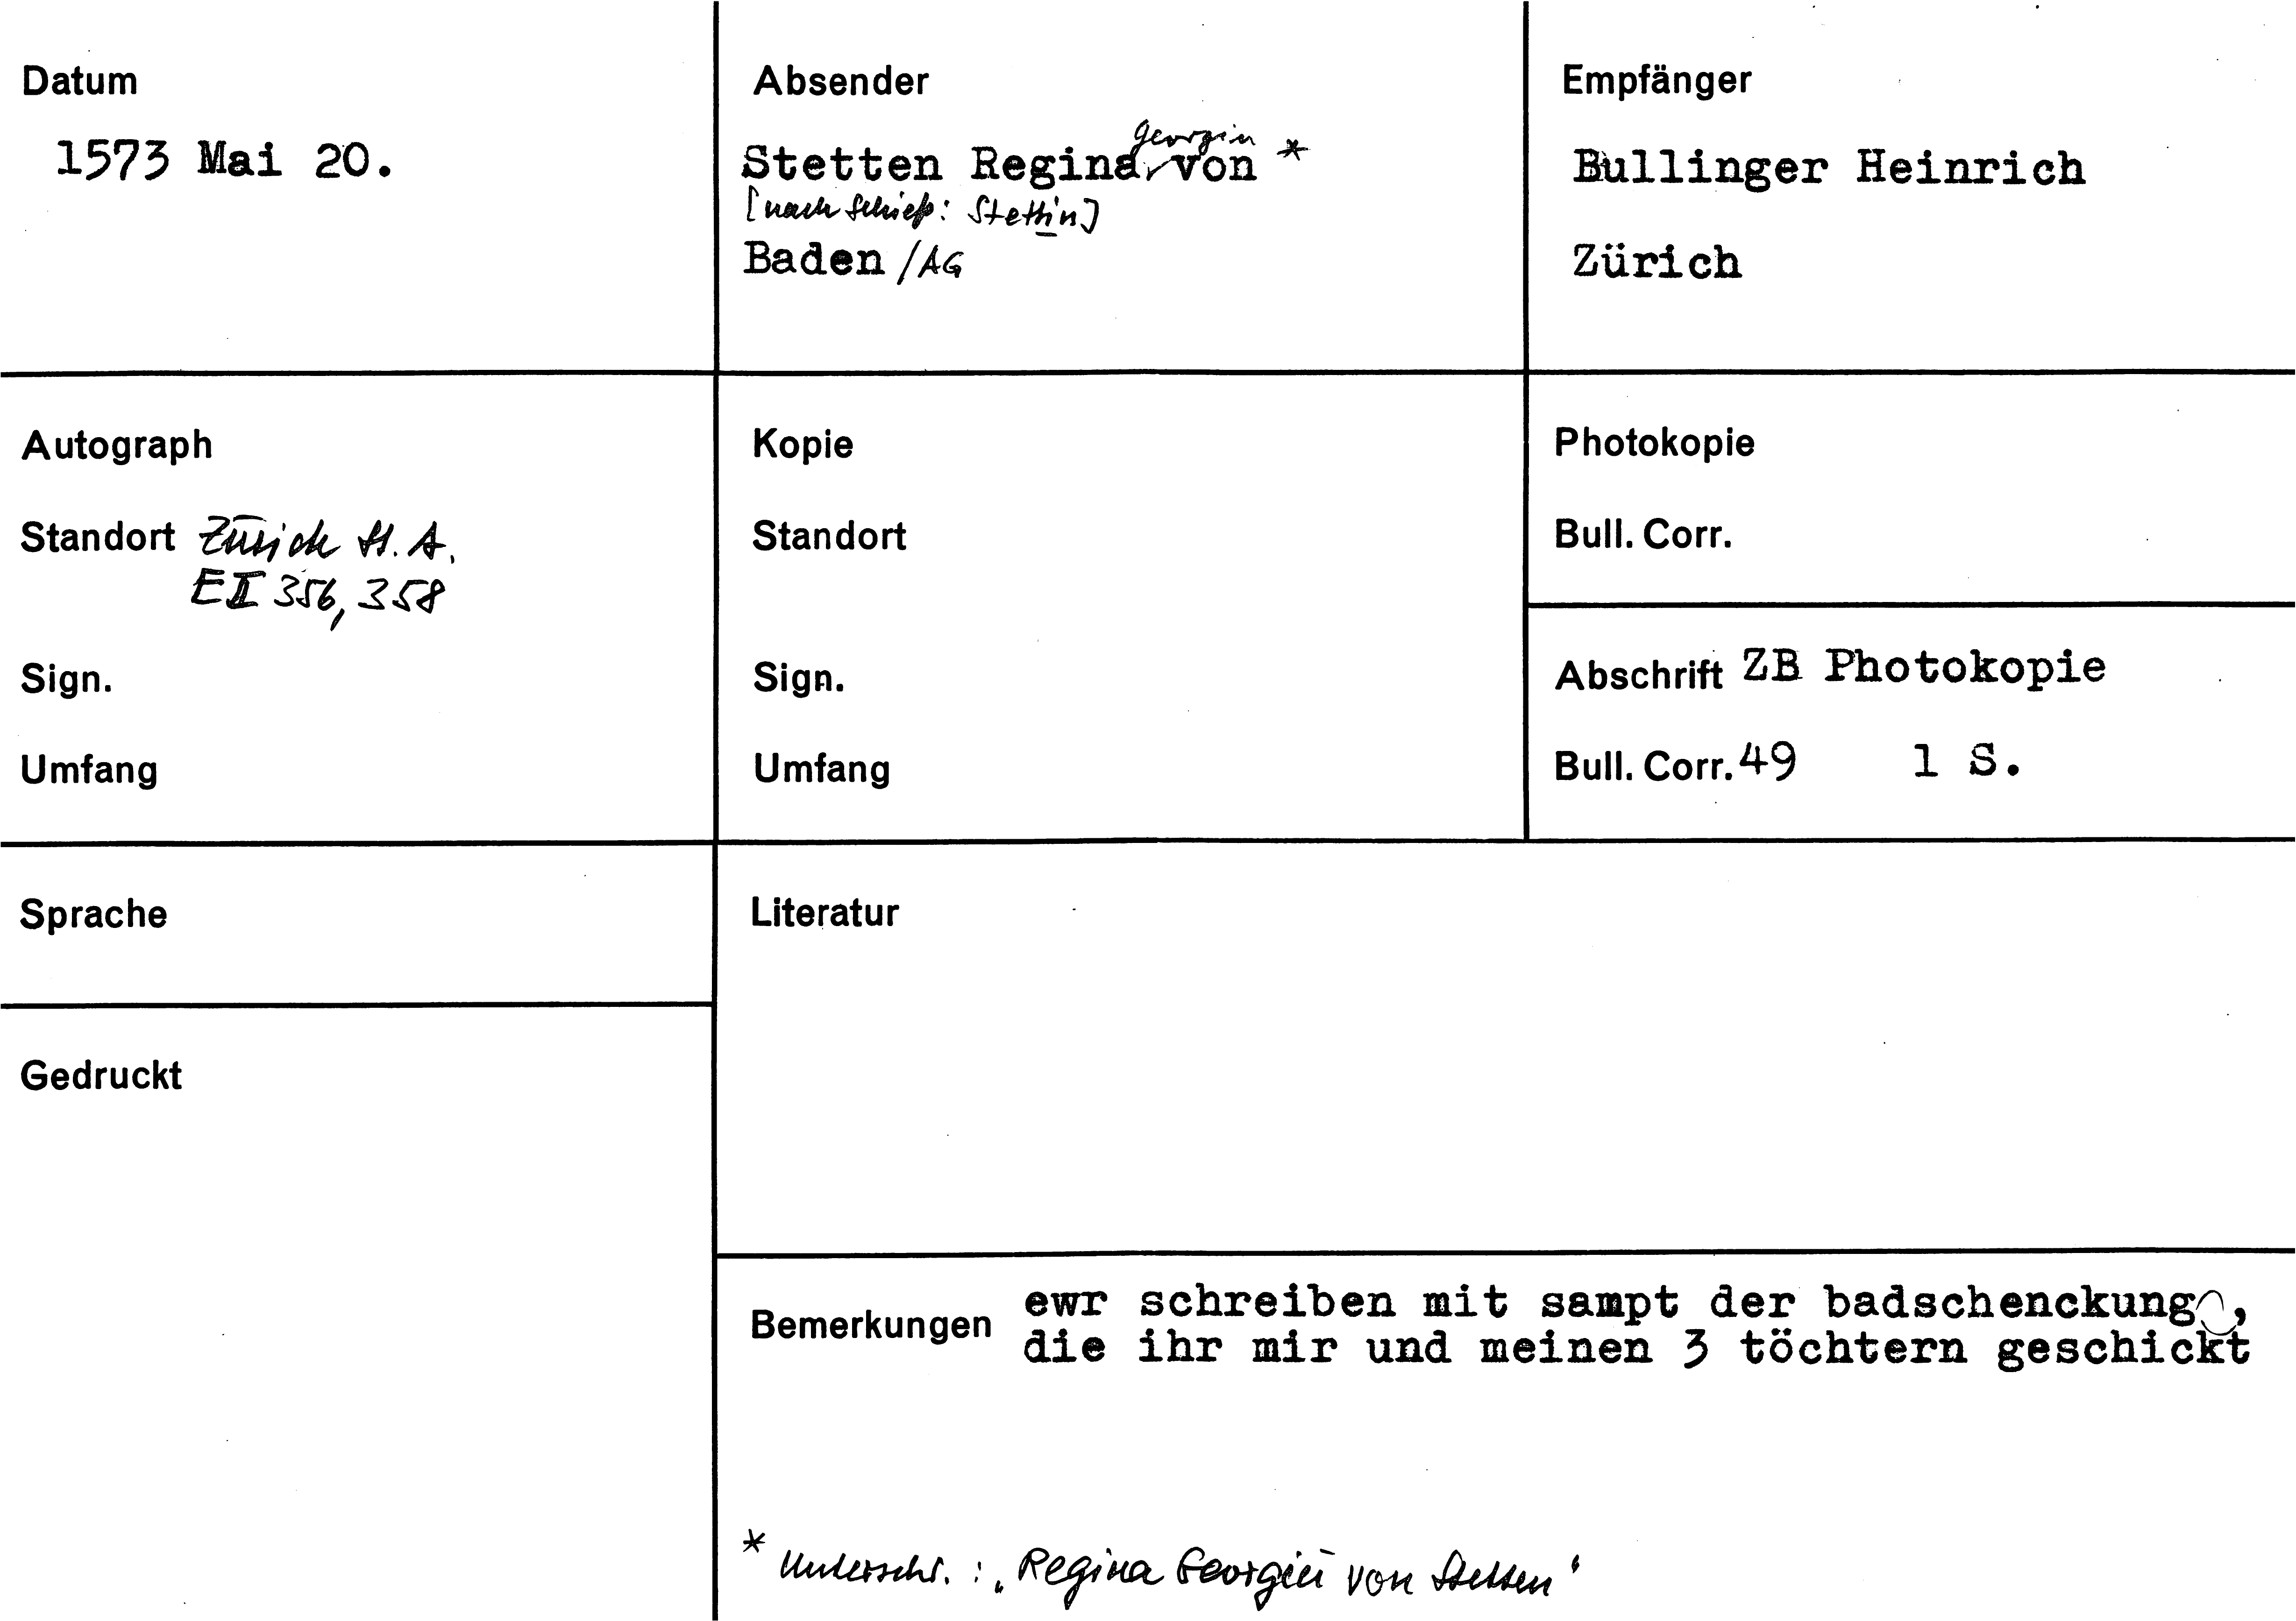 Datum
1573 Mai 20.
Absender
georgin
Stetten Regina von *
[nach Schieß: Stettin]
Baden /AG
Empfänger
Bullinger Heinrich
Zürich
Autograph
Standort Zürich St. A.
E II 356, 358
Sign.
Umfang
Kopie
Standort
Sign.
Umfang
Photokopie
Bull. Corr.
Abschrift ZB Photokopie
Bull. Corr. 49 1 S.
Sprache
Gedruckt
Literatur
Bemerkungen
ewr schreiben mit sampt der badschenckung,
die ihr mir und meinen 3 töchtern geschickt
* Unterschr.: „Regina Georgin von Stetten"